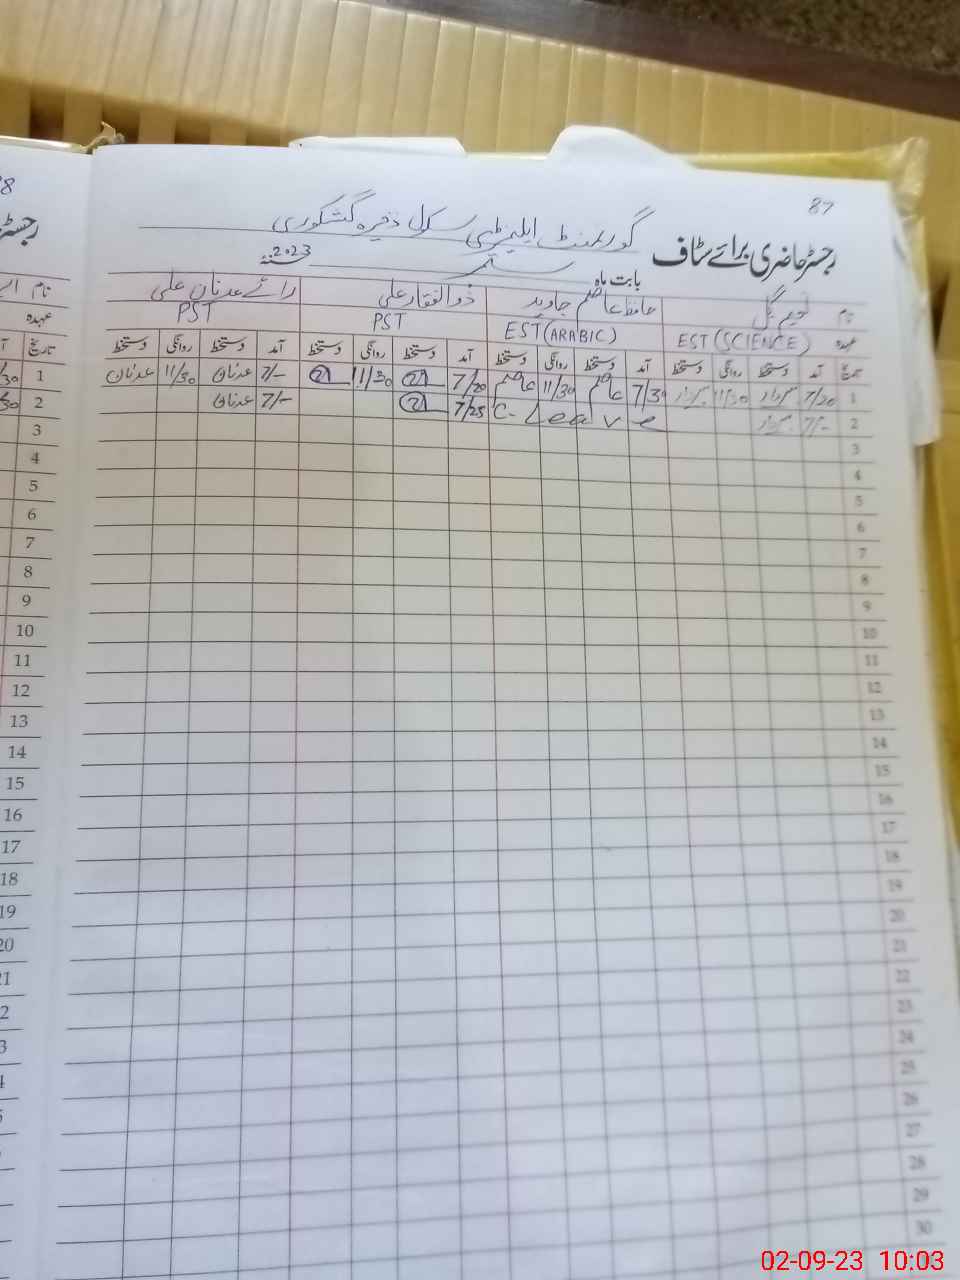 87
گورنمنٹ ایلیمنٹری سکول ذخیرہ گشکوری
رجسٹر حاضری برائے سٹاف
بابت ماہ ستمبر 2023
نام گل حافظ عاصم جاوید ذوالفقار علی رائے عدنان علی
عہدہ EST (SCIENCE) EST (ARABIC) PST PST
تاریخ آمد دستخط روانگی دستخط آمد دستخط روانگی دستخط آمد دستخط روانگی دستخط آمد دستخط روانگی دستخط
1 7/20 11/30 7/30 عاصم 11/30 عاصم 7/20 11/30 7/- عدنان 11/30 عدنان
2 7/- C-Leave 7/25 7/- عدنان
3
4
5
6
7
8
9
10
11
12
13
14
15
16
17
18
19
20
21
22
23
24
25
26
27
28
29
30
نام
عہدہ
تاریخ
1
2
3
4
5
6
7
8
9
10
11
12
13
14
15
16
17
18
19
20
02-09-23 10:03